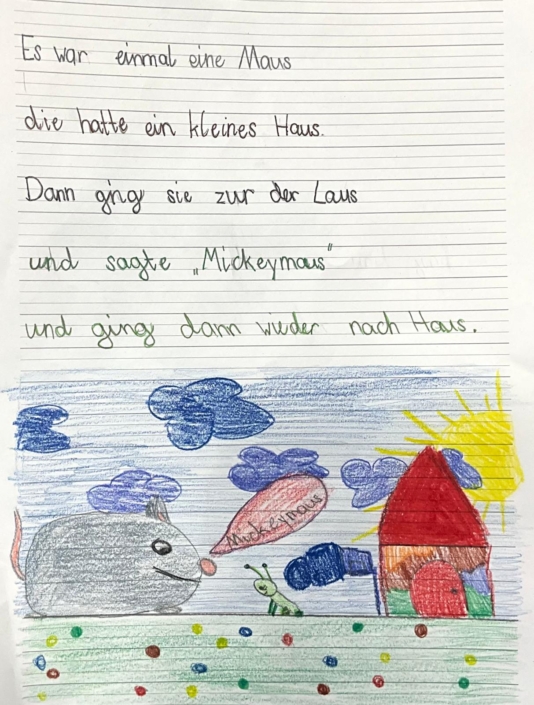 Es war einmal eine Maus
die hatte ein kleines Haus.
Dann ging sie zur der Laus
und sagte „Mickeymaus"
und ging dann wieder nach Haus.
Mickeymaus